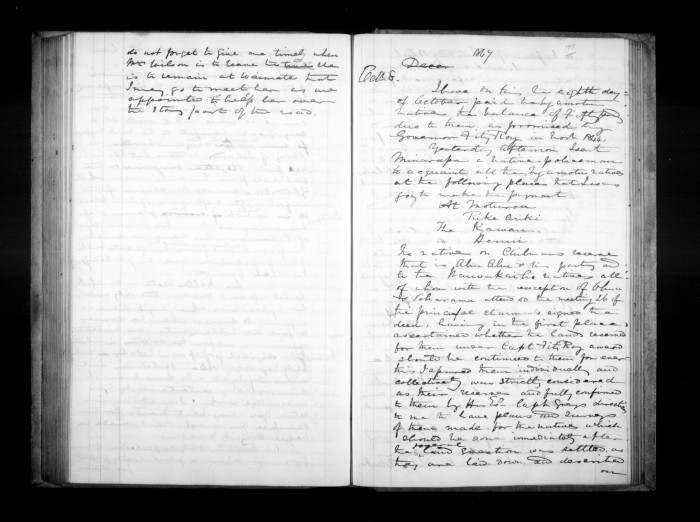 do not forget to give me timely when
Mrs Wilson is to leave to she
is to remain at Waimate that
I may go to meet her as we
appointed to help her over
the stony part of the road.
1847
Octb 8.
I have on this the eighth day
of October paid Ngamotu
natives the balance of Fifty
due to them as promised by
Governor Fitz Roy in Novb 1844.
Yesterday afternoon I sent
a native policeman
to acquaint all the Ngamotu natives
at the following places that I was
going to make the payment
At Moturoa
Puke Ariki
The Kawau
Henui
The natives on Chilmans reserve
that is Abu Abu & his party and
to the Waiwakaiho natives all
of whom with the exception of
attended the meeting 26 of
the principal claimants signed the
deed, having in the first place
ascertained whether the lands reserved
for them under Capt Fitz Roy award
should be continued to them for ever
this I assured them individually and
collectively was strictly considered
as their reserves and fully confirmed
to them by His Exy Capt Greys directing
to me to have plans and surveys
of them made for the natives which
should be done immediately after
the general land question was settled, as
they are laid down and described
on